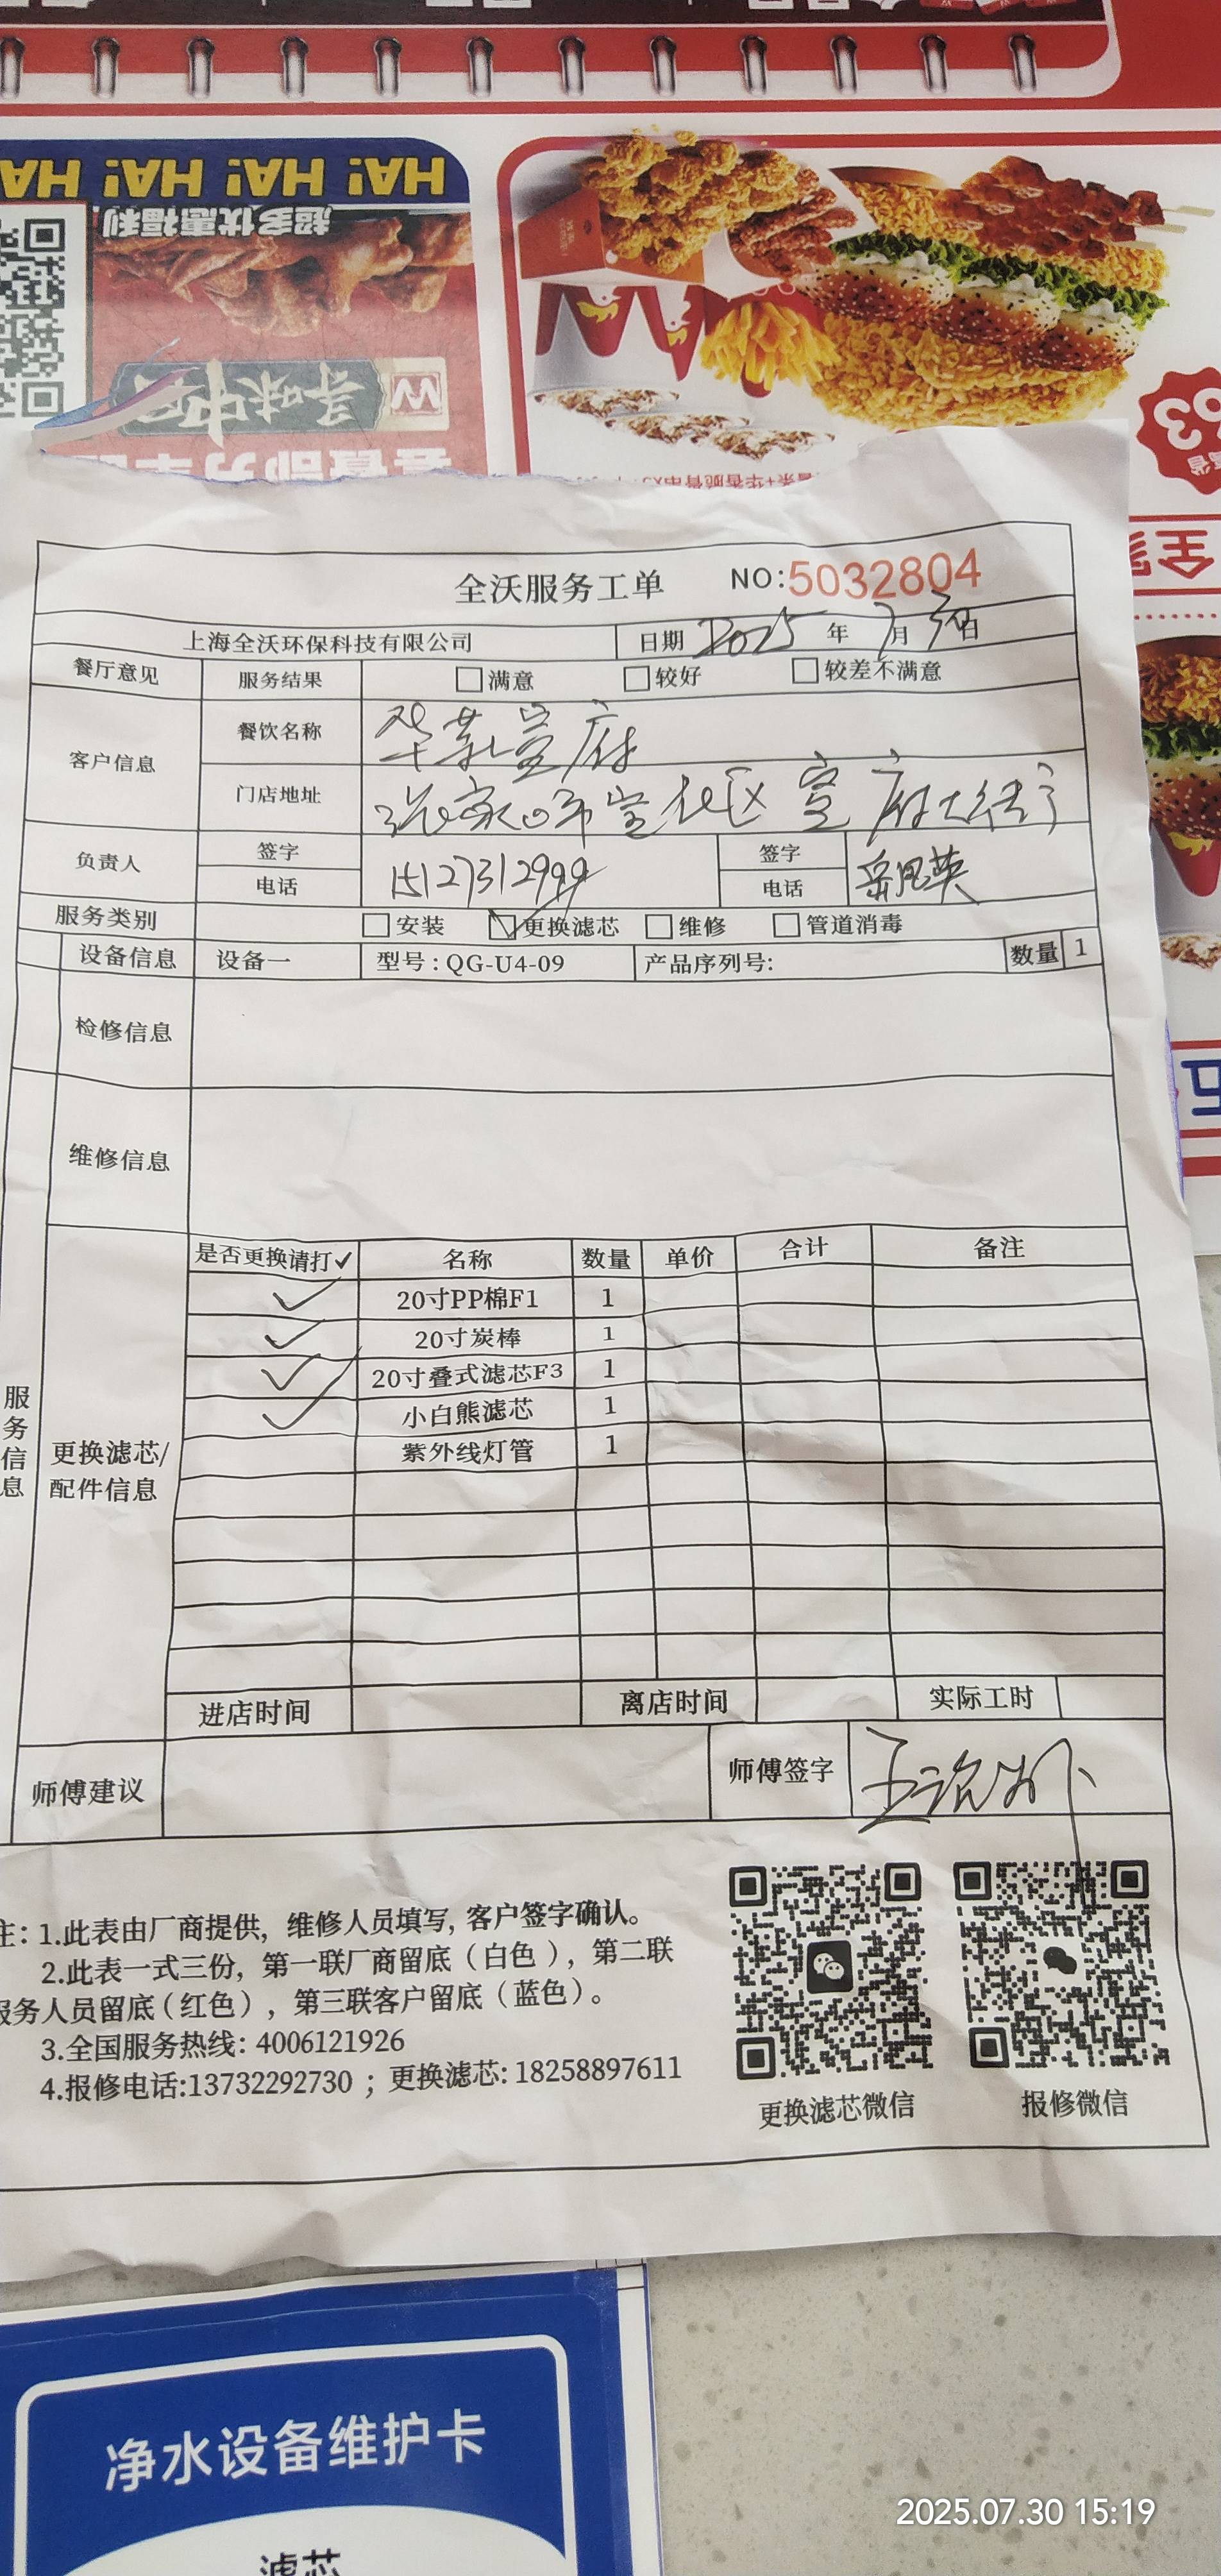 HA! HA! HA! HA
超多优惠福利
寻味中国
63
全沃服务工单 NO:5032804
上海全沃环保科技有限公司 日期 2025 年 7 月 30 日
餐厅意见 服务结果 □满意 □较好 □较差不满意
客户信息 餐饮名称 华莱士宣府
门店地址 张家口市宣化区宣府大街
负责人 签字 签字
电话 15127312999 电话 岳凤英
服务类别 □安装 ☑更换滤芯 □维修 □管道消毒
设备信息 设备一 型号:QG-U4-09 产品序列号: 数量 1
检修信息
维修信息
服务信息
更换滤芯/配件信息
是否更换请打✓ 名称 数量 单价 合计 备注
✓ 20寸PP棉F1 1
✓ 20寸炭棒 1
✓ 20寸叠式滤芯F3 1
✓ 小白熊滤芯 1
紫外线灯管 1
进店时间 离店时间 实际工时
师傅建议 师傅签字
注: 1.此表由厂商提供, 维修人员填写, 客户签字确认。
2.此表一式三份, 第一联厂商留底（白色）, 第二联
服务人员留底（红色）, 第三联客户留底（蓝色）。
3.全国服务热线: 4006121926
4.报修电话:13732292730 ; 更换滤芯: 18258897611
更换滤芯微信 报修微信
净水设备维护卡
滤芯
2025.07.30 15:19